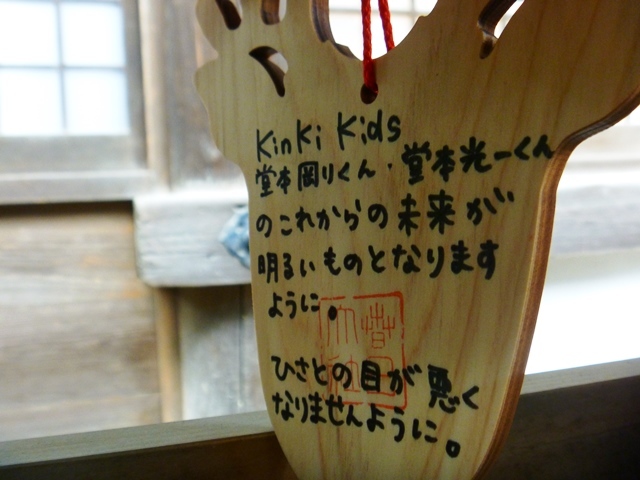 KinKi Kids
堂本岡りくん・堂本光一くん
のこれからの未来が
明るいものとなります
ように。
ひさとの目が悪く
なりませんように。